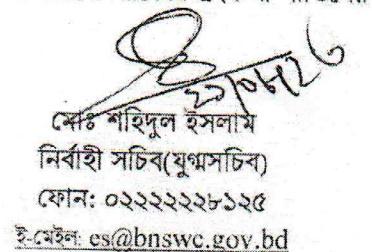 মোঃ শহিদুল ইসলাম
নির্বাহী সচিব(যুগ্মসচিব)
ফোন: ০২২২২২৮১২৫
ই-মেইল: es@bnswc.gov.bd